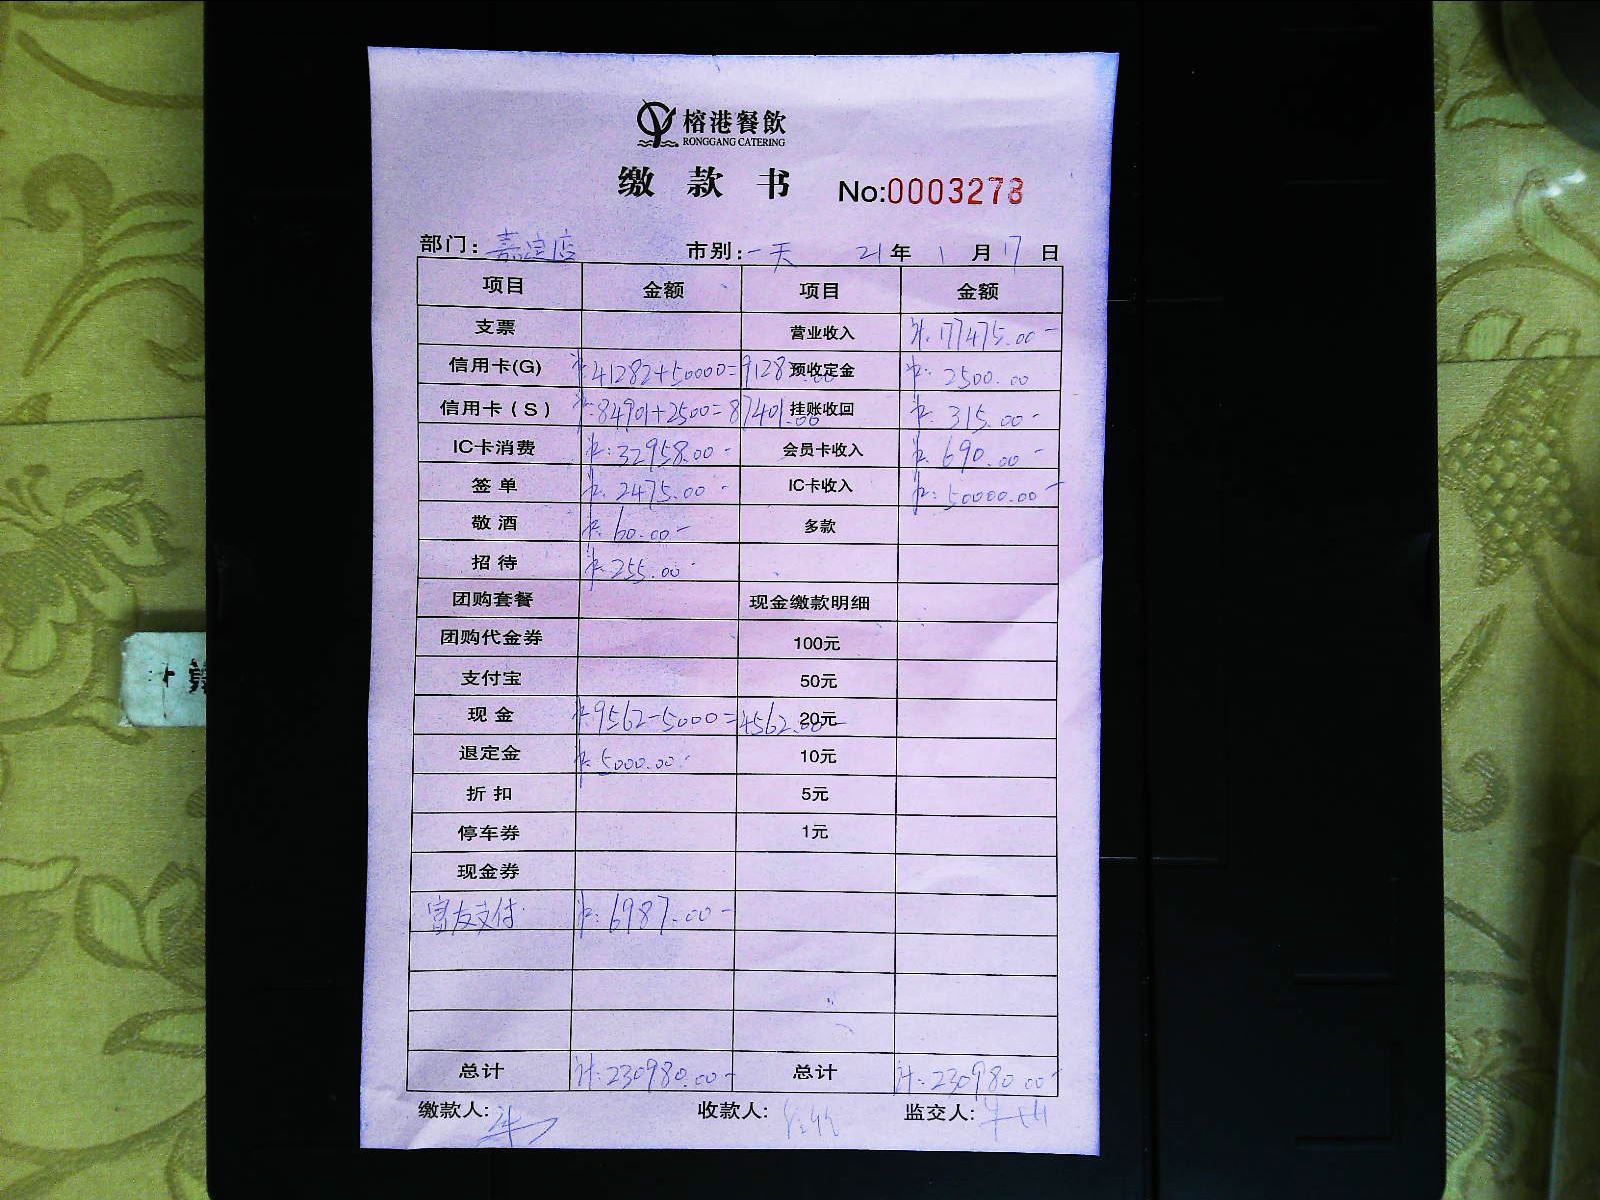 榕港餐飲
RONGGANG CATERING
缴款书 No:0003278
部门: 嘉定店 市别: 一天 21年1月17日
项目 金额 项目 金额
支票 营业收入 计:177475.00-
信用卡(G) 卡:41282+50000=91282.00 预收定金 卡:2500.00
信用卡(S) 卡:84901+2500=87401.00 挂账收回 卡:315.00-
IC卡消费 卡:32958.00- 会员卡收入 卡:690.00-
签单 卡:2475.00- IC卡收入 卡:50000.00-
敬酒 卡:60.00- 多款
招待 卡:255.00
团购套餐 现金缴款明细
团购代金券 100元
支付宝 50元
现金 卡9562-5000=4562.00- 20元
退定金 卡:5000.00- 10元
折扣 5元
停车券 1元
现金券
富友支付 卡:6987.00-
总计 计:230980.00- 总计 计:230980.00-
缴款人: 收款人: 监交人: